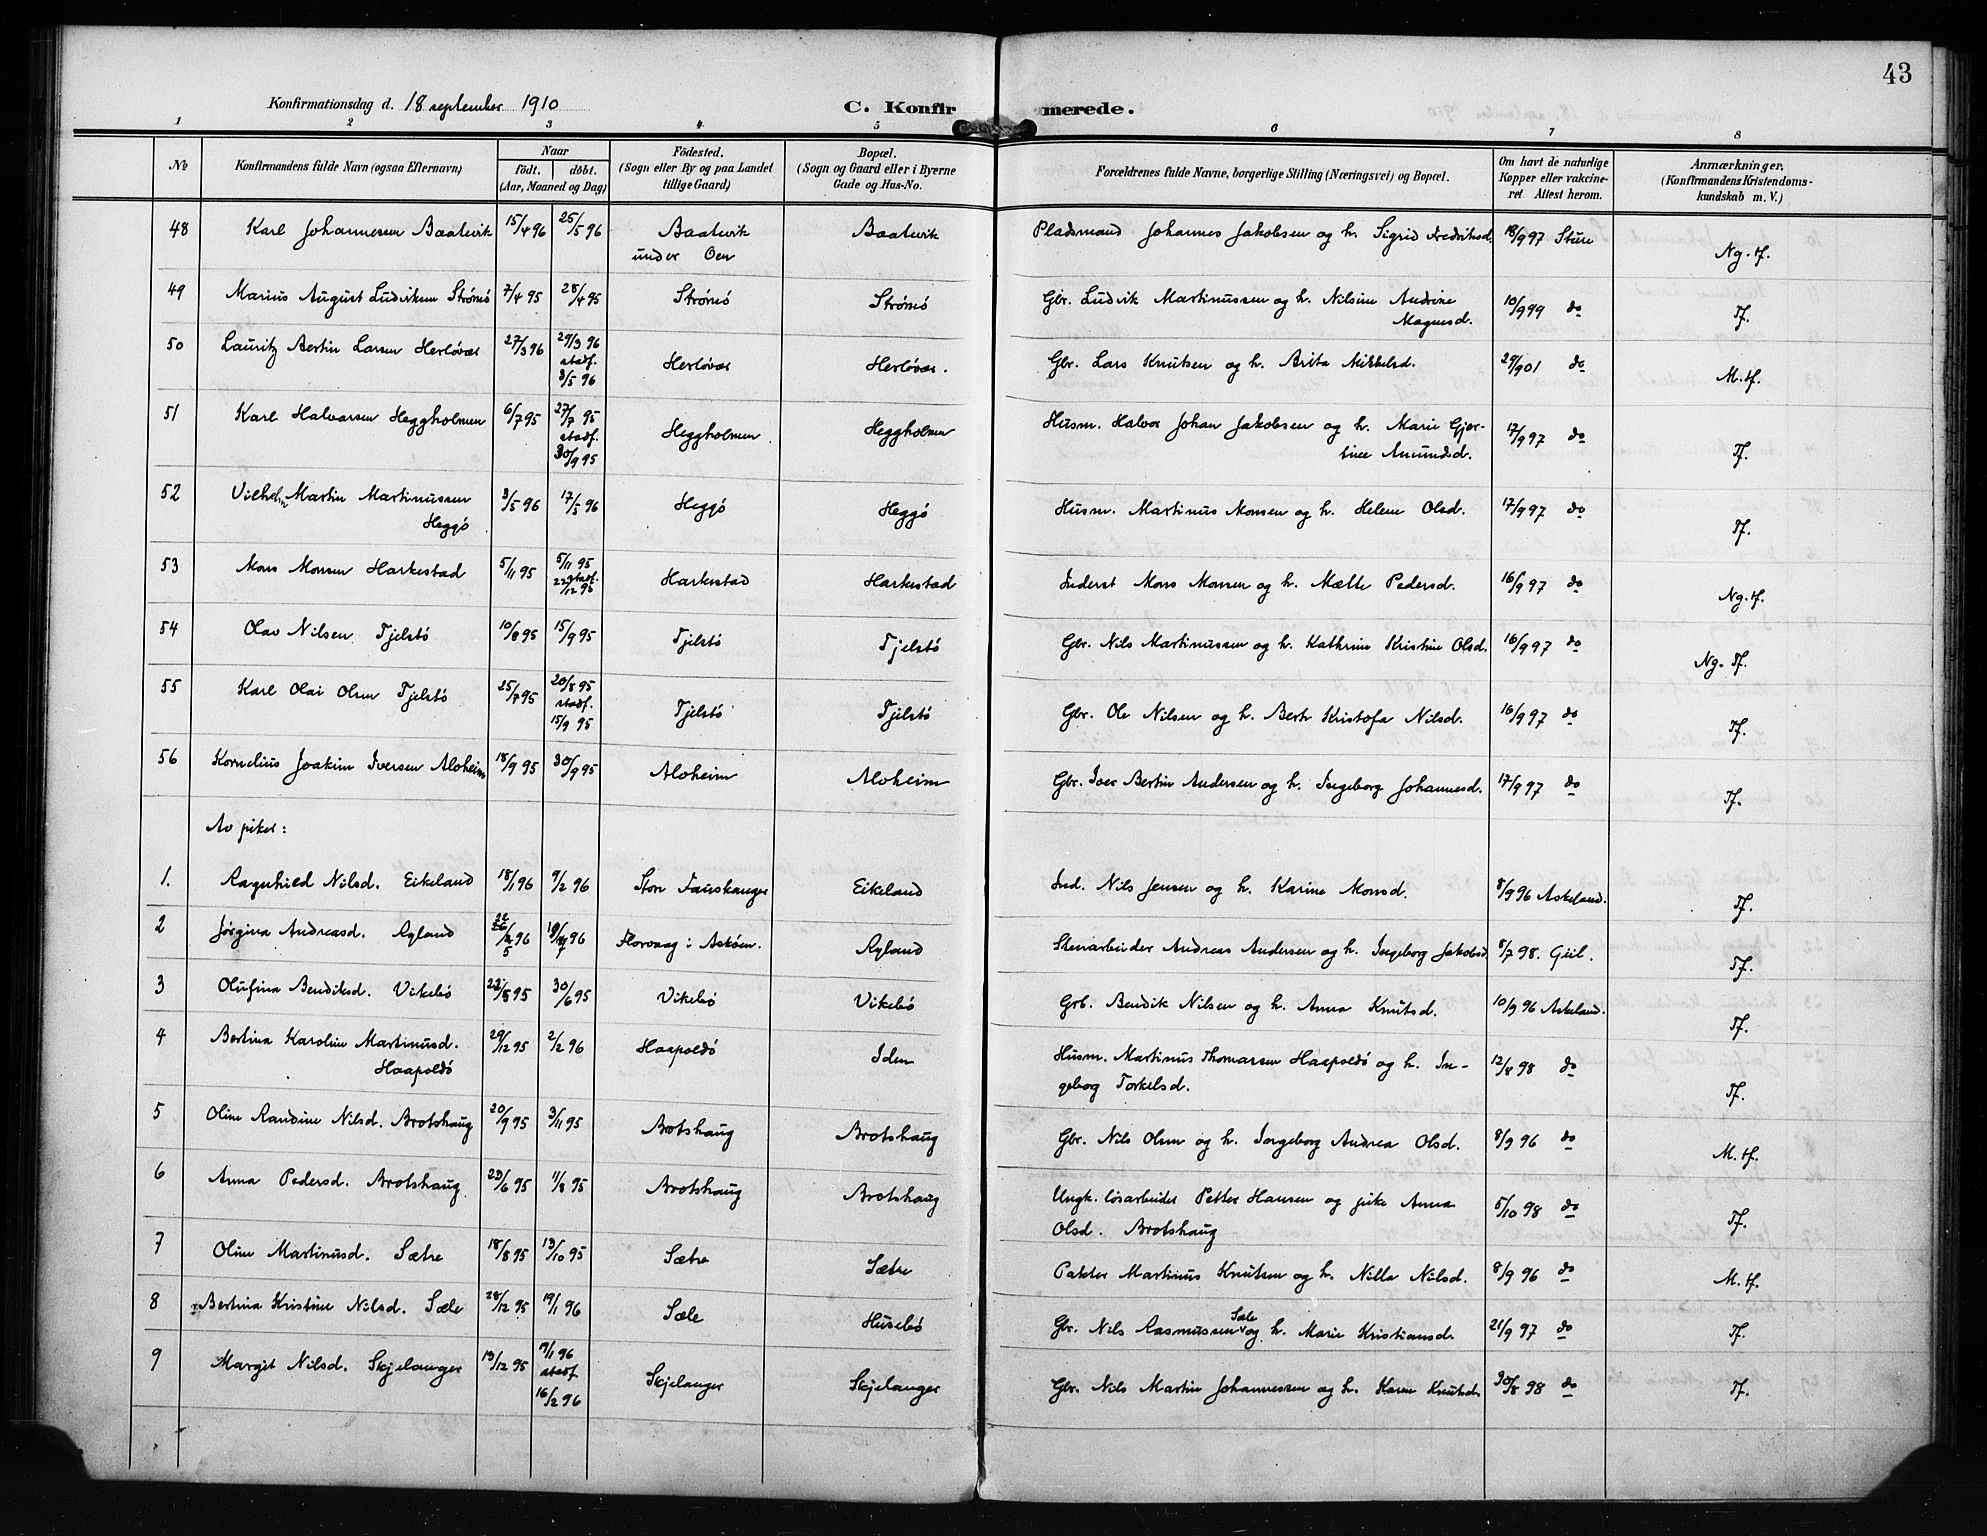 43
Konfirmationsdag d. 18 september 1910
C. Konfirmerede.
1 2 3 4 5 6 7 8
No
Konfirmandens fulde Navn (ogsaa Efternavn)
Naar
født. døbt.
(Aar, Maaned og Dag)
Fødested.
(Sogn eller By og paa Landet
tillige Gaard)
Bopæl.
(Sogn og Gaard eller i Byerne
Gade og Hus-No.
Forældrenes fulde Navne, borgerlige Stilling (Næringsvei) og Bopæl.
Om havt de naturlige
Kopper eller vakcine-
ret. Attest herom.
Anmærkninger,
(Konfirmandens Kristendoms-
kundskab m. V.)
48 Karl Johannessen Baatevik 15/4 96 25/5 96 Baatevik Baatevik Pladsmand Johannes Jakobsen og h. Sigrid Fredriksd. 18/9 97 Sture Ng. tf.
under Oen
49 Marius August Ludviksen Strømø 7/4 95 28/4 95 Strømø Strømø Gbr. Ludvik Martinussen og h. Nilsine Andrine 10/9 99 do Tf.
Magnusd.
50 Lauritz Bertin Larsen Herløvær 27/3 96 29/3 96 Herløvær Herløvær. Gbr. Lars Knutsen og h. Brita Mikkelsd. 29/9 01 do M. tf.
stadf.
3/5 96
51 Karl Halvorsen Heggholmen 6/7 95 27/7 95 Heggholmen Heggholmen Husm. Halvor Johan Jakobsen og h. Marie Gjer- 17/9 97 do Tf.
stadf. tine Amundsd.
30/9 95
52 Vilhelm Martin Martinussen 3/5 96 17/5 96 Heggø Heggø Husm. Martinus Monsen og h. Helene Olsd. 17/9 97 do Tf.
Heggø
53 Mons Monsen Harkestad 5/11 95 5/11 95 Harkestad Harkestad Inderst Mons Monsen og h. Mætte Pedersd. 16/9 97 do Ng. tf.
stadf.
22/12 95
54 Olav Nilsen Tjelstø 10/8 95 15/9 95 Tjelstø Tjelstø Gbr. Nils Martinussen og h. Kathrine Kristine Olsd. 16/9 97 do Ng. Tf.
55 Karl Olai Olsen Tjelstø 25/7 95 20/8 95 Tjelstø Tjelstø Gbr. Ole Nilsen og h. Berte Kristofa Nilsd. 16/9 97 do Tf.
stadf.
15/9 95
56 Kornelius Joakim Iversen Aloheim 18/9 95 30/9 95 Aloheim Aloheim Gbr. Iver Bertin Andersen og h. Ingeborg Johannesd. 17/9 97 do Tf.
Av piker:
1. Ragnhild Nilsd. Eikeland 18/1 96 9/2 96 Store Fauskanger Eikeland Ind. Nils Jensen og h. Karine Monsd. 8/9 96 Askeland. Tf.
2 Jørgina Andreasd. Ryland Florvaag i Askøen. Ryland Stenarbeider Andreas Andersen og h. Ingeborg Jakobsd. 8/7 98. Tf.
3 Olufina Bendiksd. Vikebø 30/6 95 Vikebø Vikebø Grb. Bendik Nilsen og h. Anna Knutsd. 10/9 96 Askeland. Tf.
4 Bertina Karoline Martinusd. 29/12 95 2/2 96 Haapoldø Iden Husm. Martinus Thomassen Haapoldø og h. In- 12/8 98 do Tf.
Haapoldø geborg Torkelsd.
5 Oline Randine Nilsd. Brotshaug 20/9 95 3/11 95 Brotshaug Brotshaug Gbr. Nils Olsen og h. Ingeborg Andrea Olsd. 8/9 96 do M. tf.
6 Anna Pedersd. Brotshaug 23/6 95 11/8 95 Brotshaug Brotshaug Ungk. løsarbeider Petter Hansen og pike Anna 5/10 98 do Tf.
Olsd. Brotshaug
7 Oline Martinusd. Sætre 18/8 95 13/10 95 Sætre Sætre Pakter Martinus Knutsen og h. Nilla Nilsd. 8/9 96 do M. tf.
8 Bertina Kristine Nilsd. Sæle 28/12 95 19/1 96 Sæle Husebø Gbr. Nils Rasmussen Sæle og h. Marie Kristiansd. 21/9 97 do Tf.
9 Margit Nilsd. Skjelanger 19/12 95 19/1 96 Skjelanger Skjelanger Gbr. Nils Martin Johannessen og h. Karen Knutsd. 30/8 98 do Tf.
stadf
16/2 96